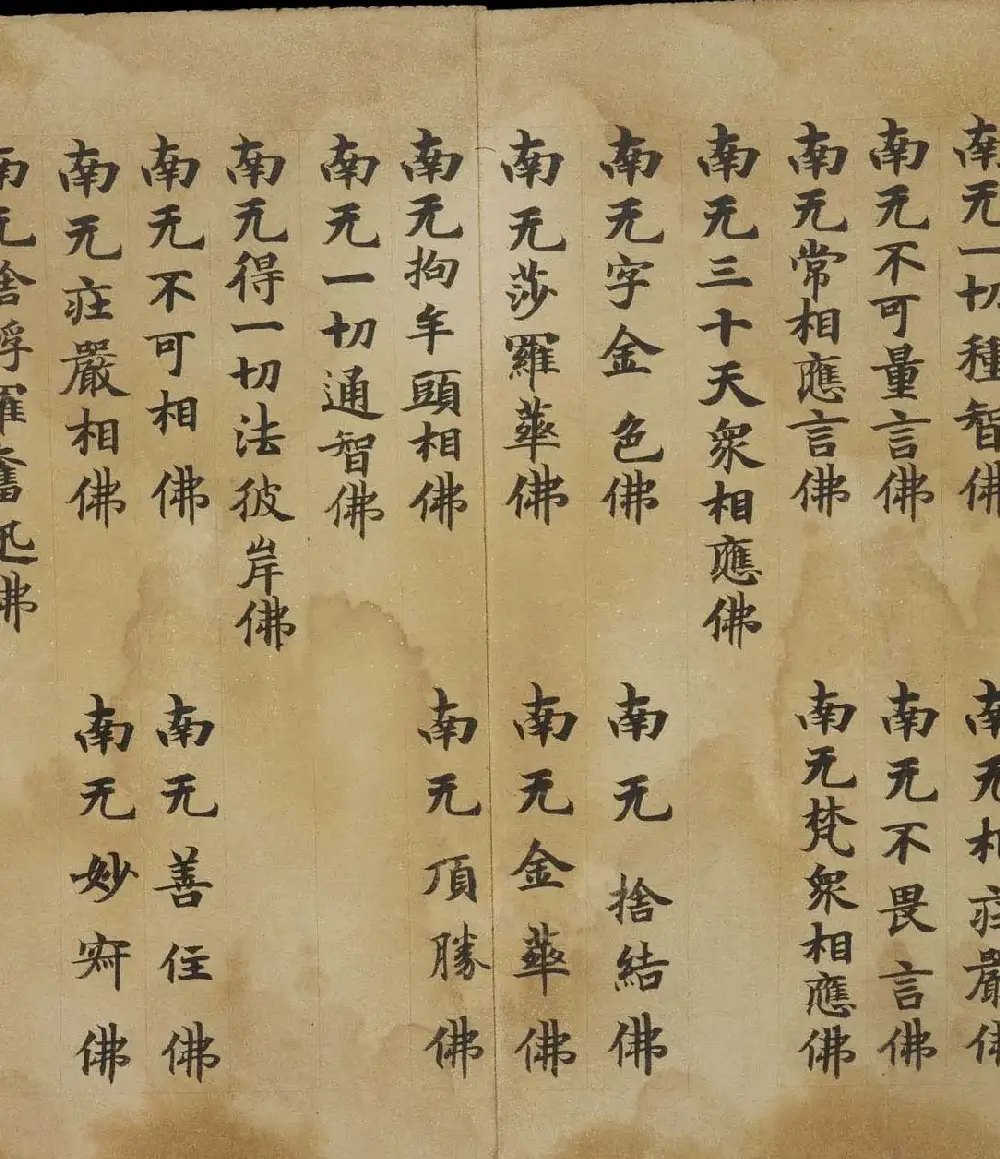 南无一切種智佛 南无相庄嚴佛
南无不可量言佛 南无不畏言佛
南无常相應言佛 南无梵衆相應佛
南无三十天衆相應佛
南无字金色佛 南无捨結佛
南无莎羅華佛 南无金華佛
南无拘牟頭相佛 南无頂勝佛
南无一切通智佛
南无得一切法彼岸佛
南无不可相佛 南无善住佛
南无庄嚴相佛 南无妙寂佛
南无羅奮迅佛